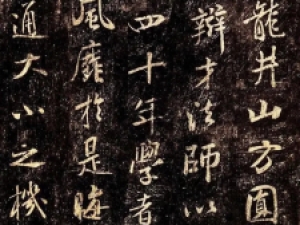 龍井山方圓
辯才法師以
四十年學者
風靡於是晦
通大小之機